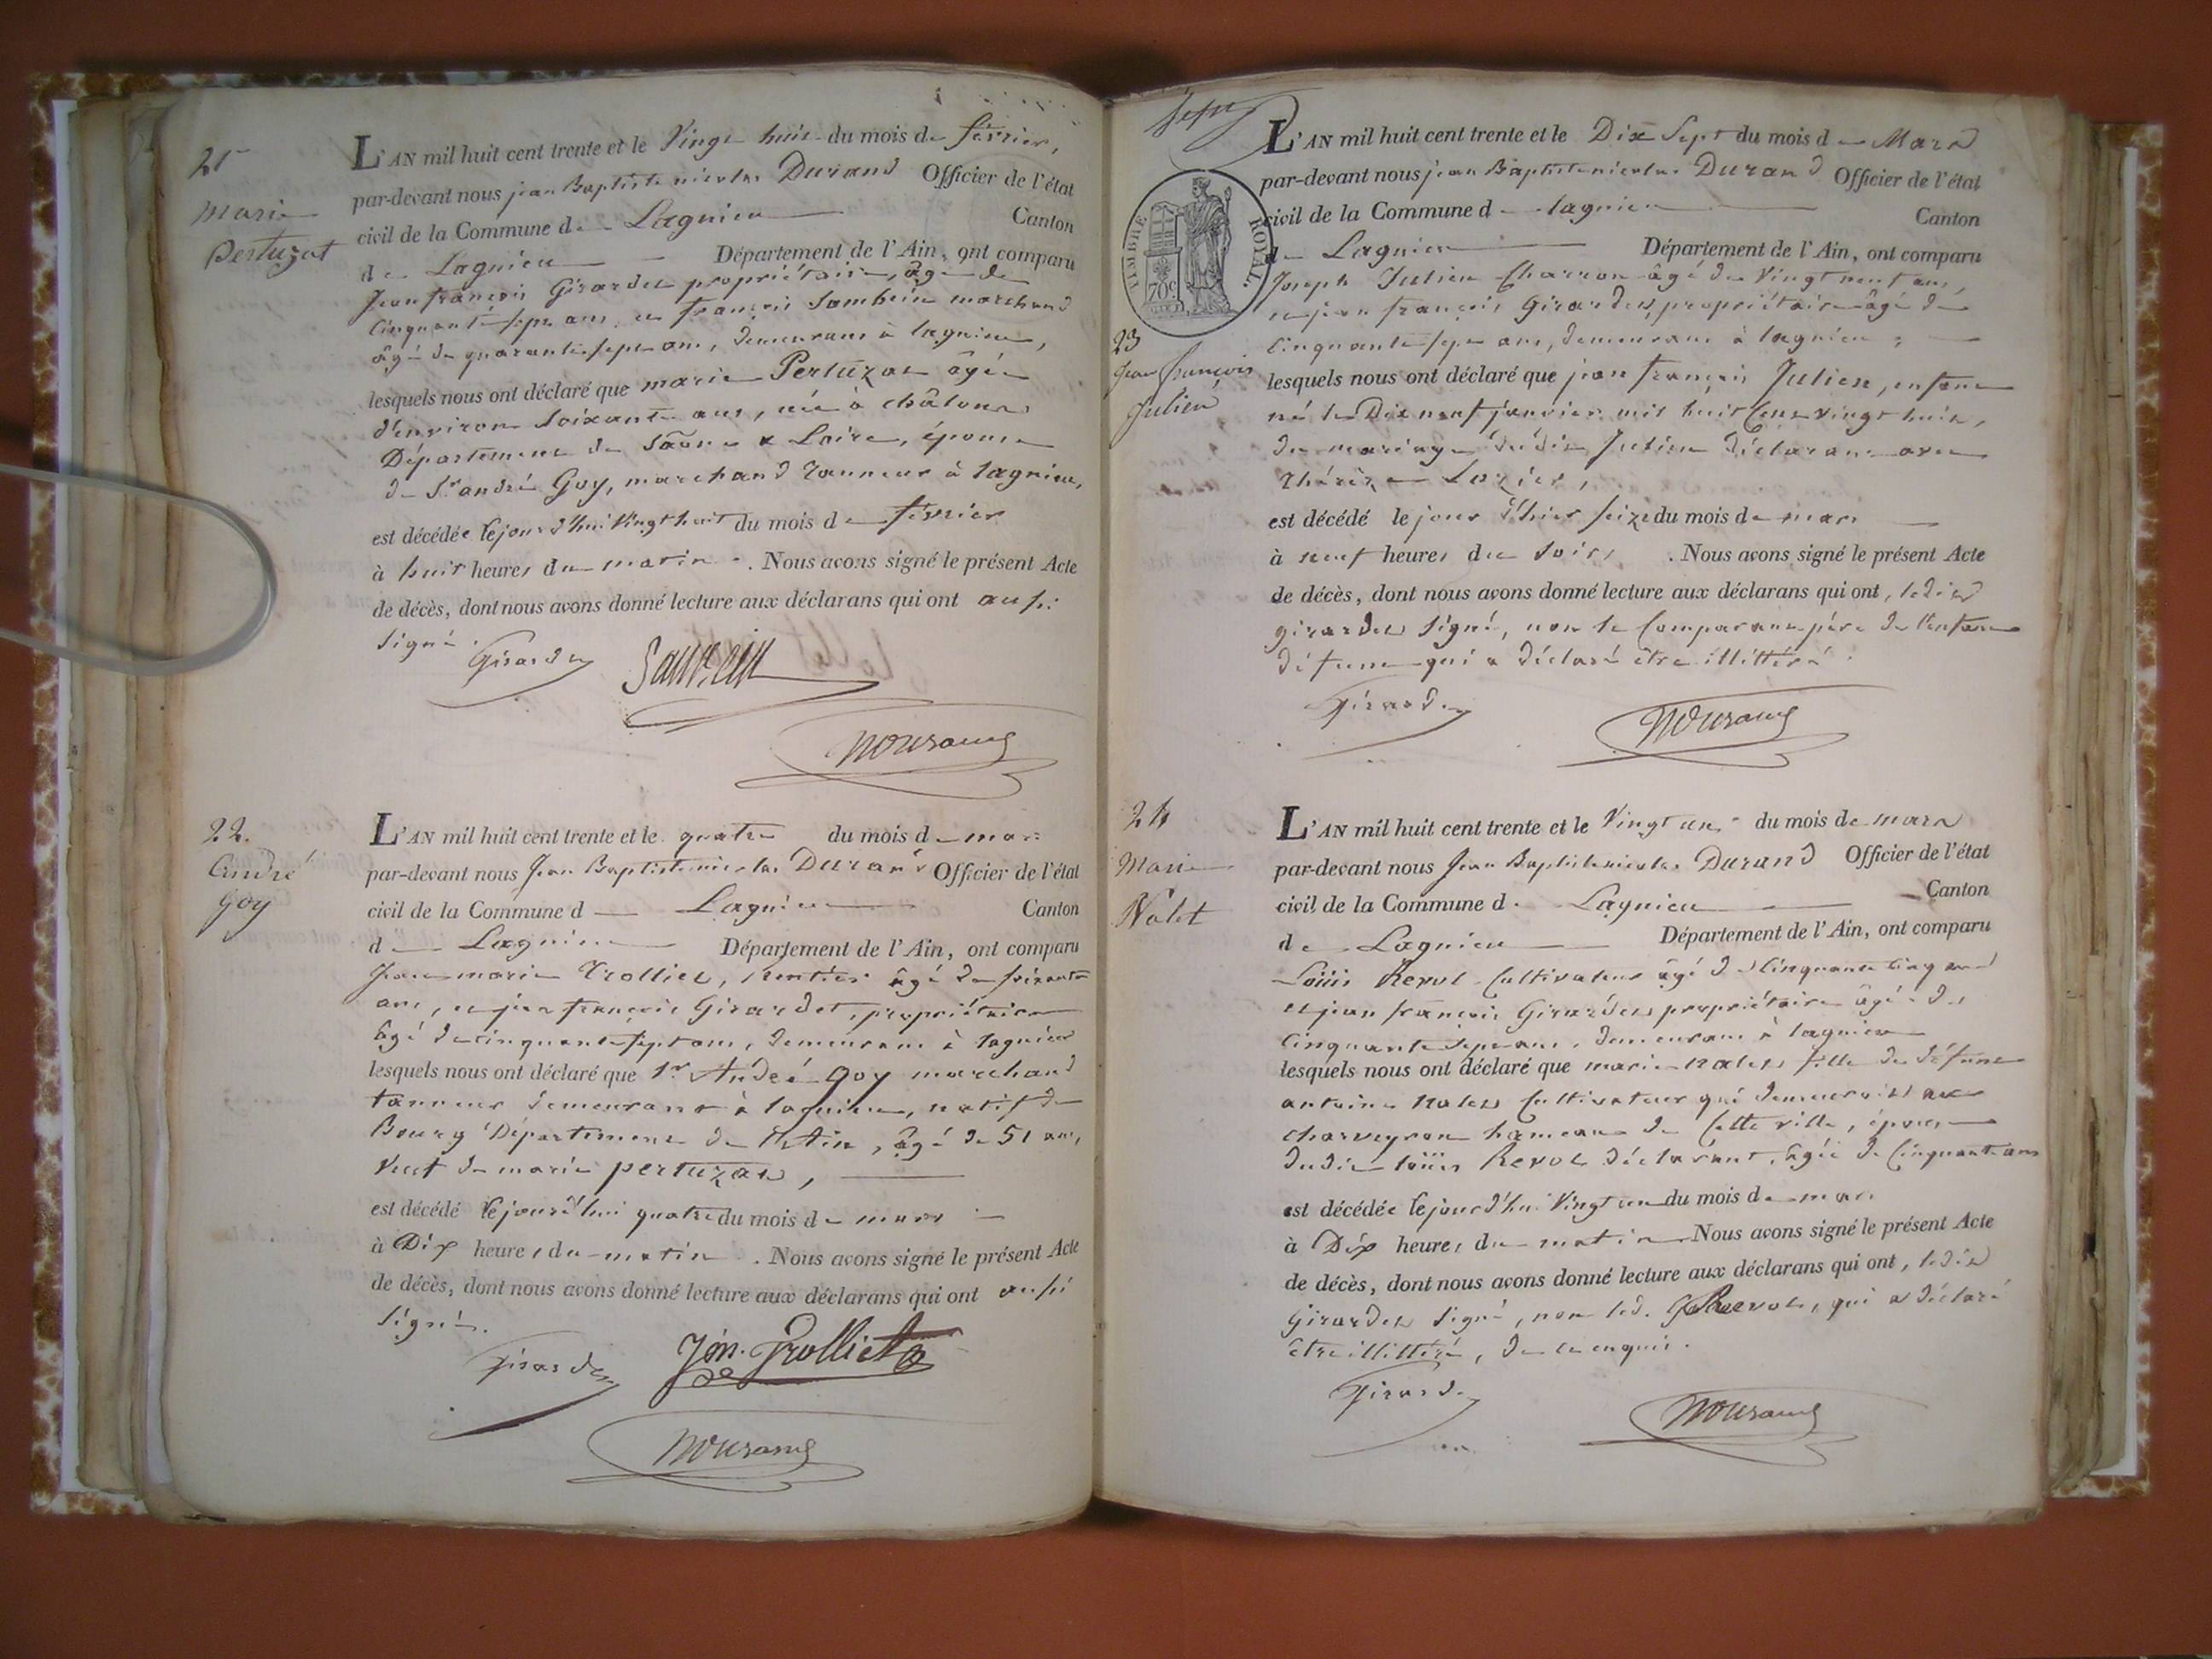 21
Marie
Pertuzat
L'AN mil huit cent trente et le Vingt huit du mois de février,
par-devant nous jean Baptiste nicolas Durand Officier de l'état
civil de la Commune de Lagnieu Canton
de Lagnieu Département de l'Ain, ont comparu
Jean françois Girardet propriétaire, âgé de
cinquante sept ans, et françois Sambein marchand
âgé de quarante sept ans, demeurans à lagnieu,
lesquels nous ont déclaré que marie Pertuzat âgée
d'environ soixante ans, née a châlons
Département de Saône & Loire, épouse
de Sr andré Goy, marchand Tanneur à lagnieu,
est décédée le jour d'hui Vingt huit du mois de février
à huit heures du matin. Nous avons signé le présent Acte
de décès, dont nous avons donné lecture aux déclarans qui ont aussi
signé.
Girardet
NDurand
22.
André
Goy
L'AN mil huit cent trente et le quatre du mois de mars
par-devant nous Jean Baptiste nicolas Durand Officier de l'état
civil de la Commune d Lagnieu Canton
de Lagnieu Département de l'Ain, ont comparu
Jean marie Trolliet, Rentier âgé de soixante
ans, et jean françois Girardet, propriétaire
âgé de cinquante sept ans, demeurans à lagnieu
lesquels nous ont déclaré que Sr André Goy marchand
tanneur demeurant à lagnieu, natif de
Bourg Département de l'Ain, âgé de 51 ans,
veuf de marie pertuzat,
est décédé le jourd'hui quatre du mois de mars
à Dix heures du matin. Nous avons signé le présent Acte
de décès, dont nous avons donné lecture aux déclarans qui ont aussi
signé.
Girardet Jm. Trolliet
NDurand
Sept
TIMBRE ROYAL.
70c
23
Jean françois
Julien
L'AN mil huit cent trente et le Dix Sept du mois de Mars
par-devant nous jean Baptiste nicolas Durand Officier de l'état
civil de la Commune d lagnieu Canton
de Lagnieu Département de l'Ain, ont comparu
Joseph Julien Charron âgé de Vingt neuf ans,
et jean françois Girardet, propriétaire âgé de
cinquante sept ans, demeurans à lagnieu;
lesquels nous ont déclaré que jean françois Julien, enfant
né le Dix neuf janvier mil huit cent vingt huit,
du mariage dudit Julien déclarant avec
Thérèze Lozier,
est décédé le jour d'hier seize du mois de mars
à neuf heures du soir. Nous avons signé le présent Acte
de décès, dont nous avons donné lecture aux déclarans qui ont, ledit
girardet signé, non le Comparant père de l'enfant
défunt qui a déclaré être illittéré.
Girardet
NDurand
24
Marie
Nalet
L'AN mil huit cent trente et le Vingt un du mois de mars
par-devant nous Jean Baptiste nicolas Durand Officier de l'état
civil de la Commune d. Lagnieu Canton
de Lagnieu Département de l'Ain, ont comparu
Louis Revol Cultivateur âgé de cinquante cinq ans
et jean françois Girardet propriétaire âgé de
cinquante sept ans, demeurans à lagnieu
lesquels nous ont déclaré que marie nalet fille de défunt
antoine nalet Cultivateur qui demeuroit au
charveyron hameau de cette ville, épouse
dudit louis Revol déclarant, âgée de cinquante ans
est décédée le jourd'hui Vingt un du mois de mars
à Dix heures du matin Nous avons signé le présent Acte
de décès, dont nous avons donné lecture aux déclarans qui ont, ledit
Girardet signé, non led. Revol, qui a déclaré
être illittéré, de ce enquis.
Girardet
NDurand